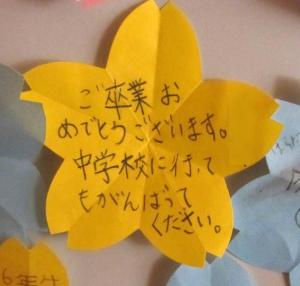 ご卒業お
めでとうございます。
中学校に行って
もがんばって
ください。
6年生